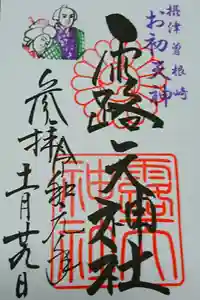 摂津曽根崎
お初天神
露路天神社
参拝
令和元年
十一月廿九日
露天神社